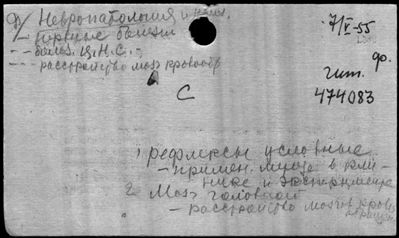 ф/ Невропатология и псих.
– нервные болезни
– – болез. ц.н.с. –
– – – расстройство мозг. кровообр.
7/V-55
ф.
Чит.
474083
С
1 рефлексы условные
– примен. метода в кли-
нике и эксперименте
2. Мозг головной
– расстройство мозгов. кровообращения